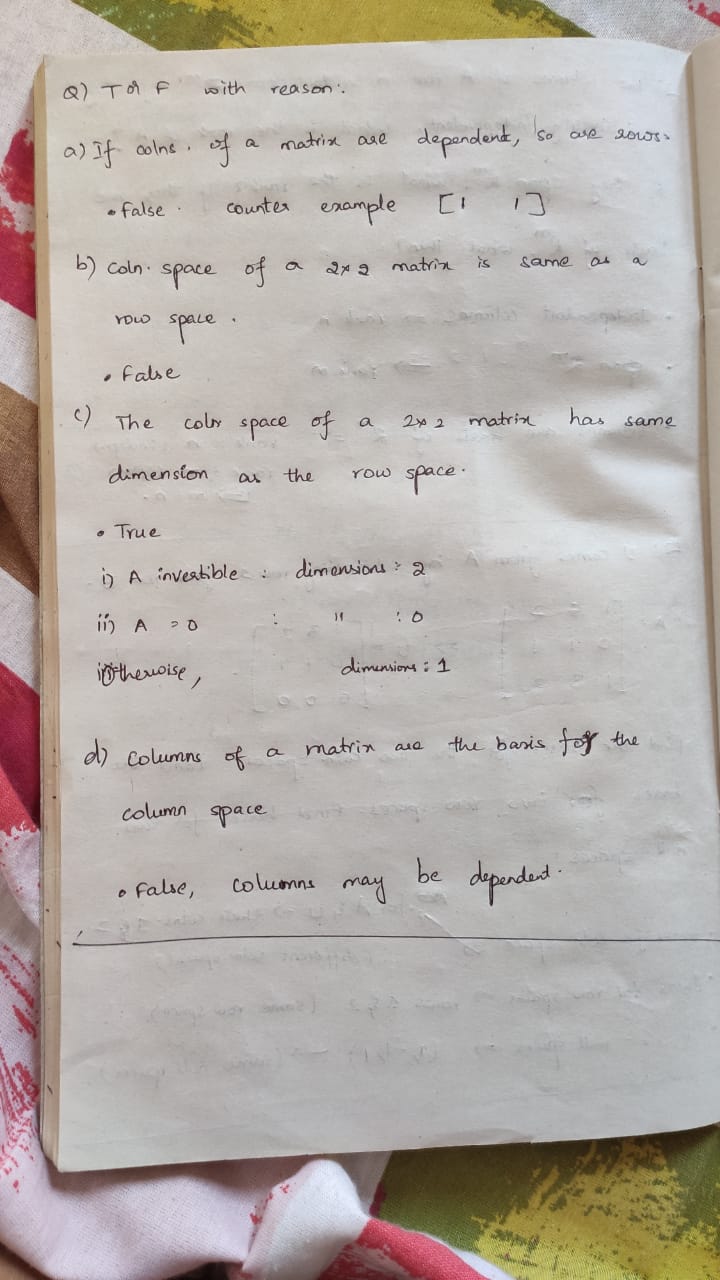 Q) T or F with reason:
a) If colns. of a matrix are dependent, so are rows.
• false. counter example [1 1]
b) coln. space of a 2x2 matrix is same as a
row space.
• False
c) The coln space of a 2x2 matrix has same
dimension as the row space.
• True
i) A invertible : dimensions : 2
ii) A = 0 : " : 0
iii) Otherwise, dimensions : 1
d) Columns of a matrix are the basis for the
column space
• False, columns may be dependent.